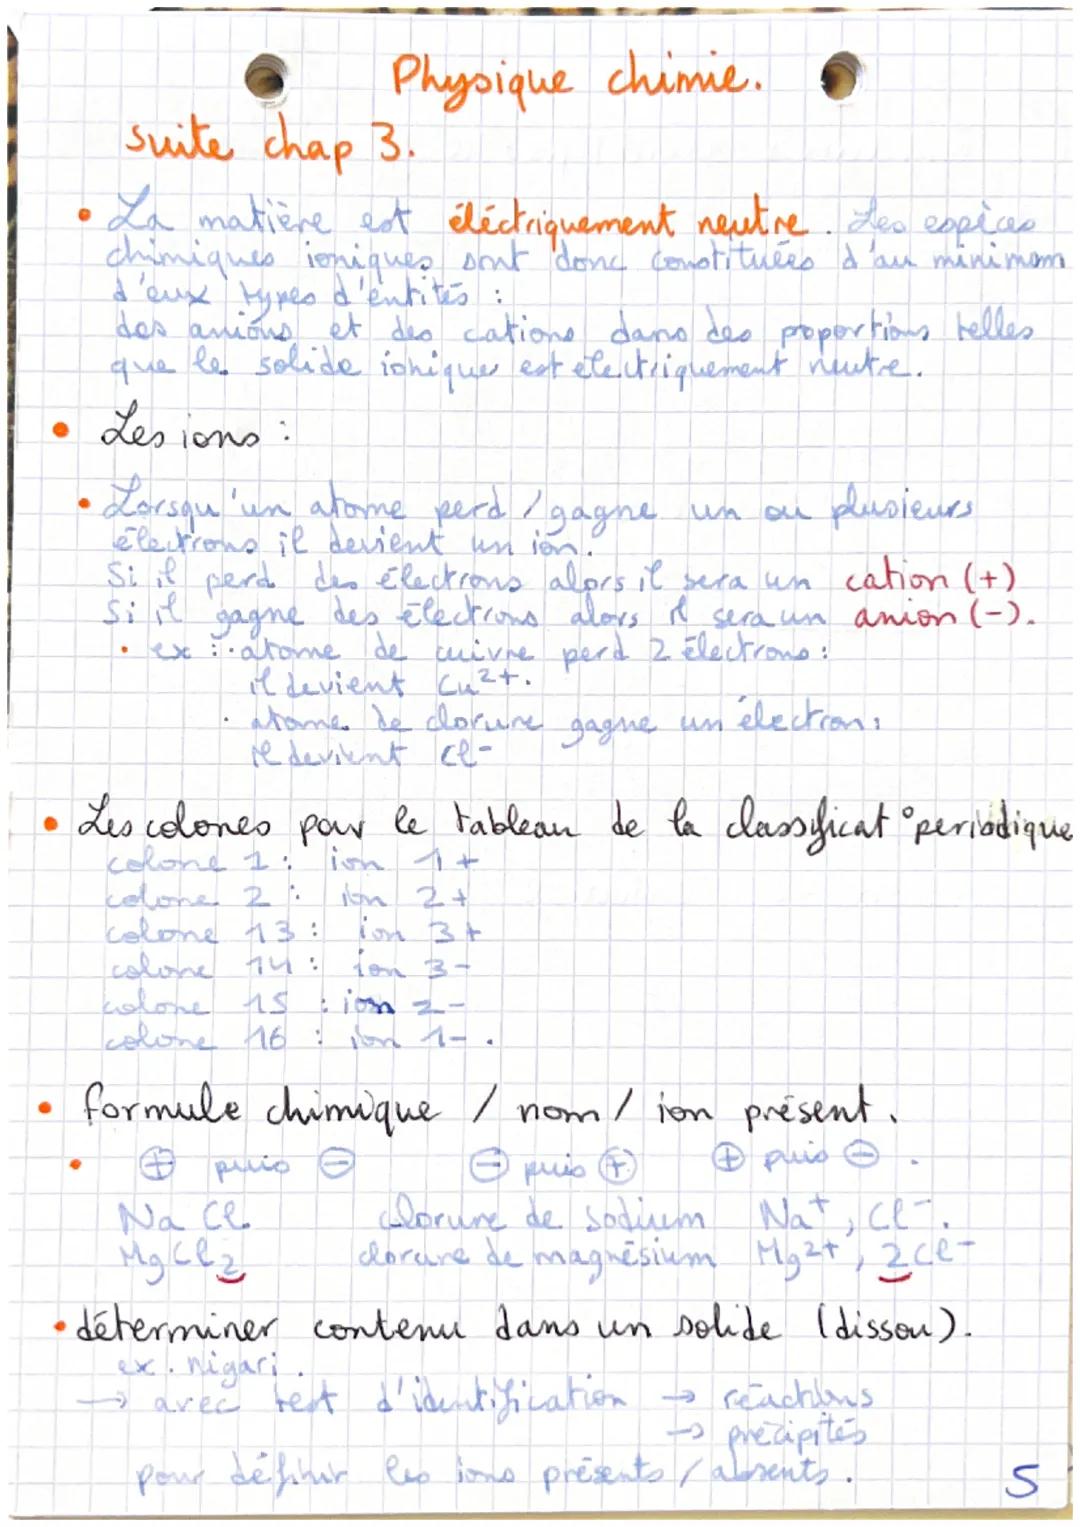 Physique chimie.
suite chap 3.
• La matière est éléctriquement neutre. Les espèces
chimiques ioniques sont donc constituées d'au minimom
d'eux types d'entités :
des anions et des cations dans des proportions telles
que le solide ionique est électriquement neutre.
• Les ions :
• Lorsqu'un atome perd / gagne un ou plusieurs
électrons il devient un ion.
Si il perd des électrons alors il sera un cation (+)
Si il gagne des électrons alors il sera un anion (-).
• ex : · atome de cuivre perd 2 électrons :
il devient Cu²⁺.
· atome de clorure gagne un électron :
il devient Cl⁻
• Les colones pour le tableau de la classificat° periodique
colone 1 : ion 1+
colone 2 : ion 2+
colone 13 : ion 3+
colone 14 : ion 3-
colone 15 : ion 2-
colone 16 : ion 1-.
• formule chimique / nom / ion présent.
• ⊕ puis ⊖ ⊖ puis ⊕ ⊕ puis ⊖.
Na Cl. clorure de sodium Na⁺, Cl⁻.
Mg Cl₂ clorure de magnésium Mg²⁺, 2Cl⁻
• déterminer contenu dans un solide (dissou).
ex. nigari.
→ avec test d'identification → réactions
→ précipités
pour définir les ions présents / absents.
5